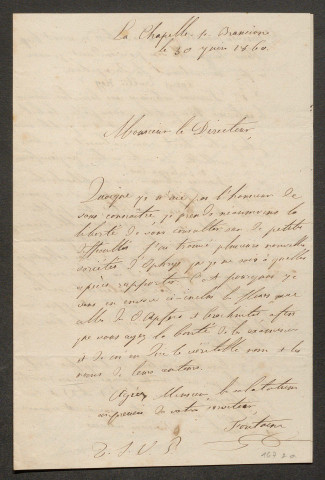 La Chapelle s. Brancion
le 30 juin 1860.
Monsieur le Directeur,
Quoique je n'aie pas l'honneur de
vous connaître, je prends néanmoins la
liberté de vous consulter sur de petites
difficultés. J'ai trouvé plusieurs nouvelles
variétés d'Ophrys que je ne sais à quelles
espèces rapporter. C'est pourquoi je
vous en envoie ci-inclus les fleurs avec
celles de l'Apifera et Arachnites afin
que vous ayez la bonté de
et de m'en dire le véritable nom et les
noms de leurs auteurs.
Agréez Monsieur, les salutations
de votre serviteur,
Fontaine
T. S. V. P.